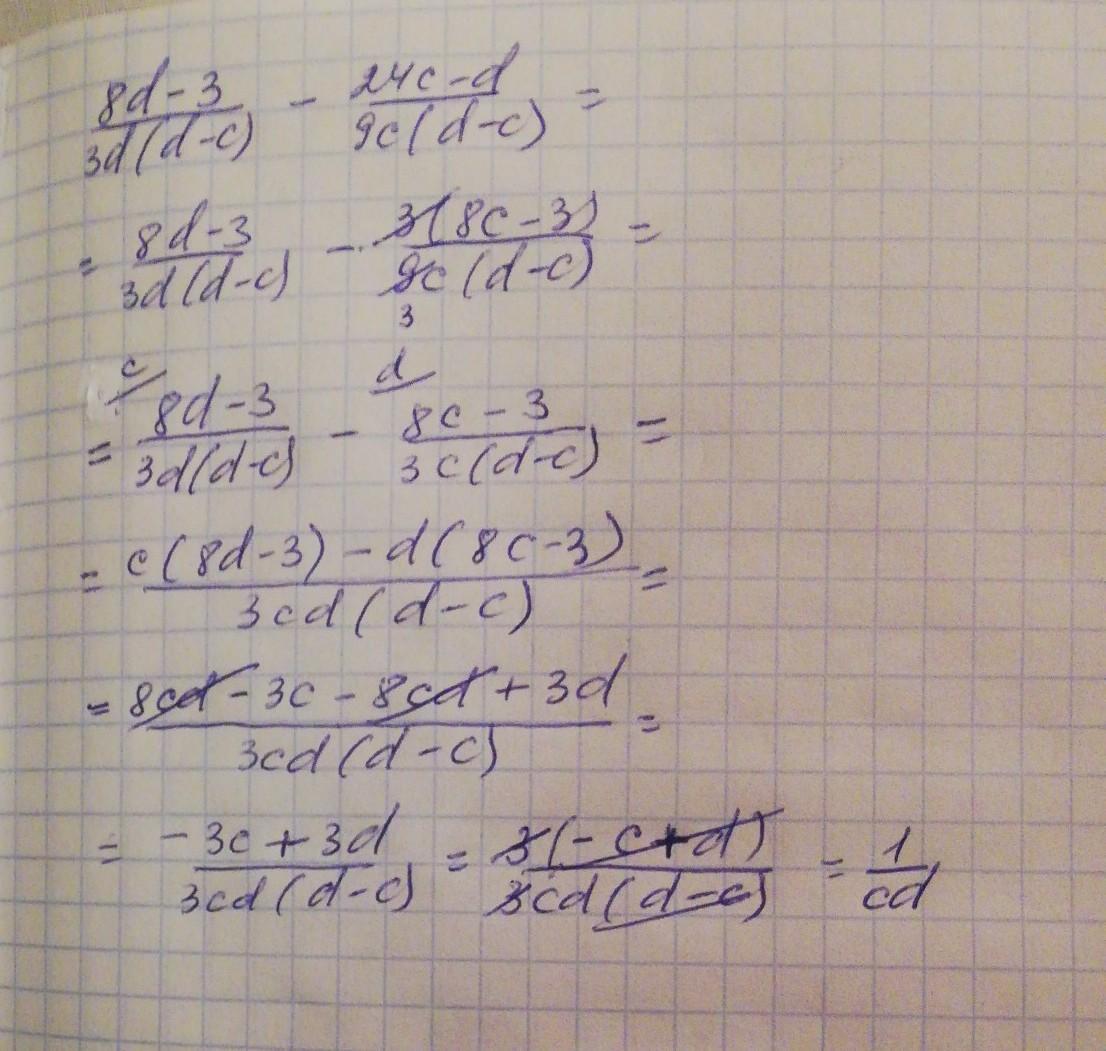 (8d-3)/(3d(d-c)) - (24c-d)/(9c(d-c)) =
= (8d-3)/(3d(d-c)) - 3(8c-3)/(9c(d-c)) = 3
= c/ (8d-3)/(3d(d-c)) - d/ (8c-3)/(3c(d-c)) =
= (c(8d-3)-d(8c-3))/(3cd(d-c)) =
= (8cd-3c-8cd+3d)/(3cd(d-c)) =
= (-3c+3d)/(3cd(d-c)) = 3(-c+d)/(3cd(d-c)) = 1/(cd)